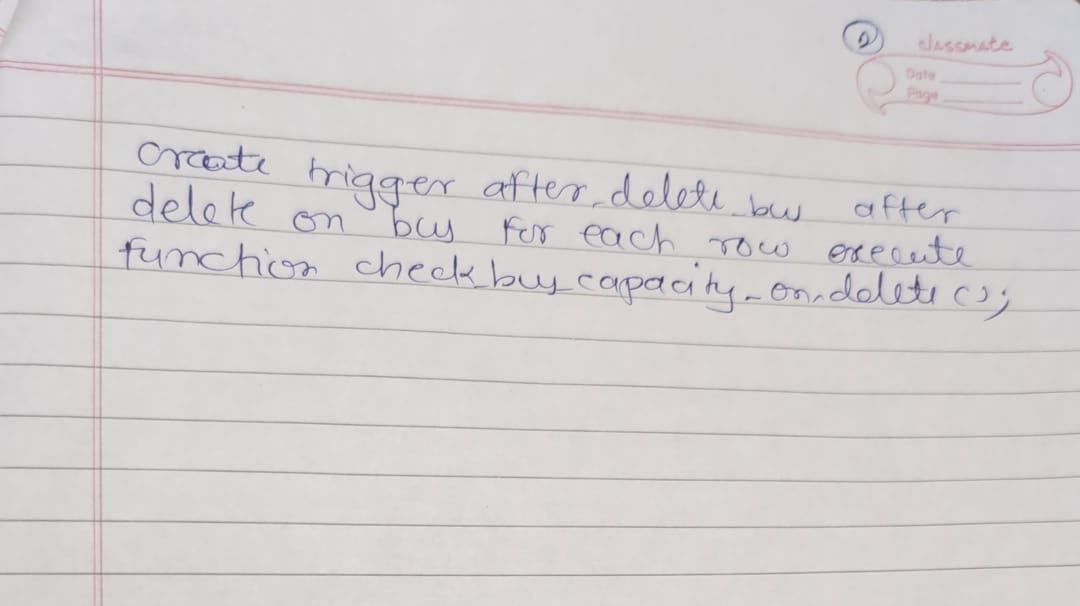 2
classmate
Date
Page
create trigger after_delete_bus after
delete on bus for each row execute
function check_bus_capacity_on_delete ();